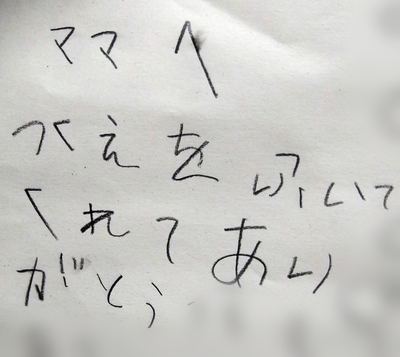 ママへ
つくえをふいて
くれてあり
がとう